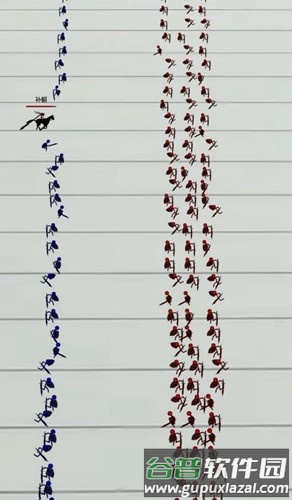 孙韶
谷普软件园
www.gupuxiazai.com